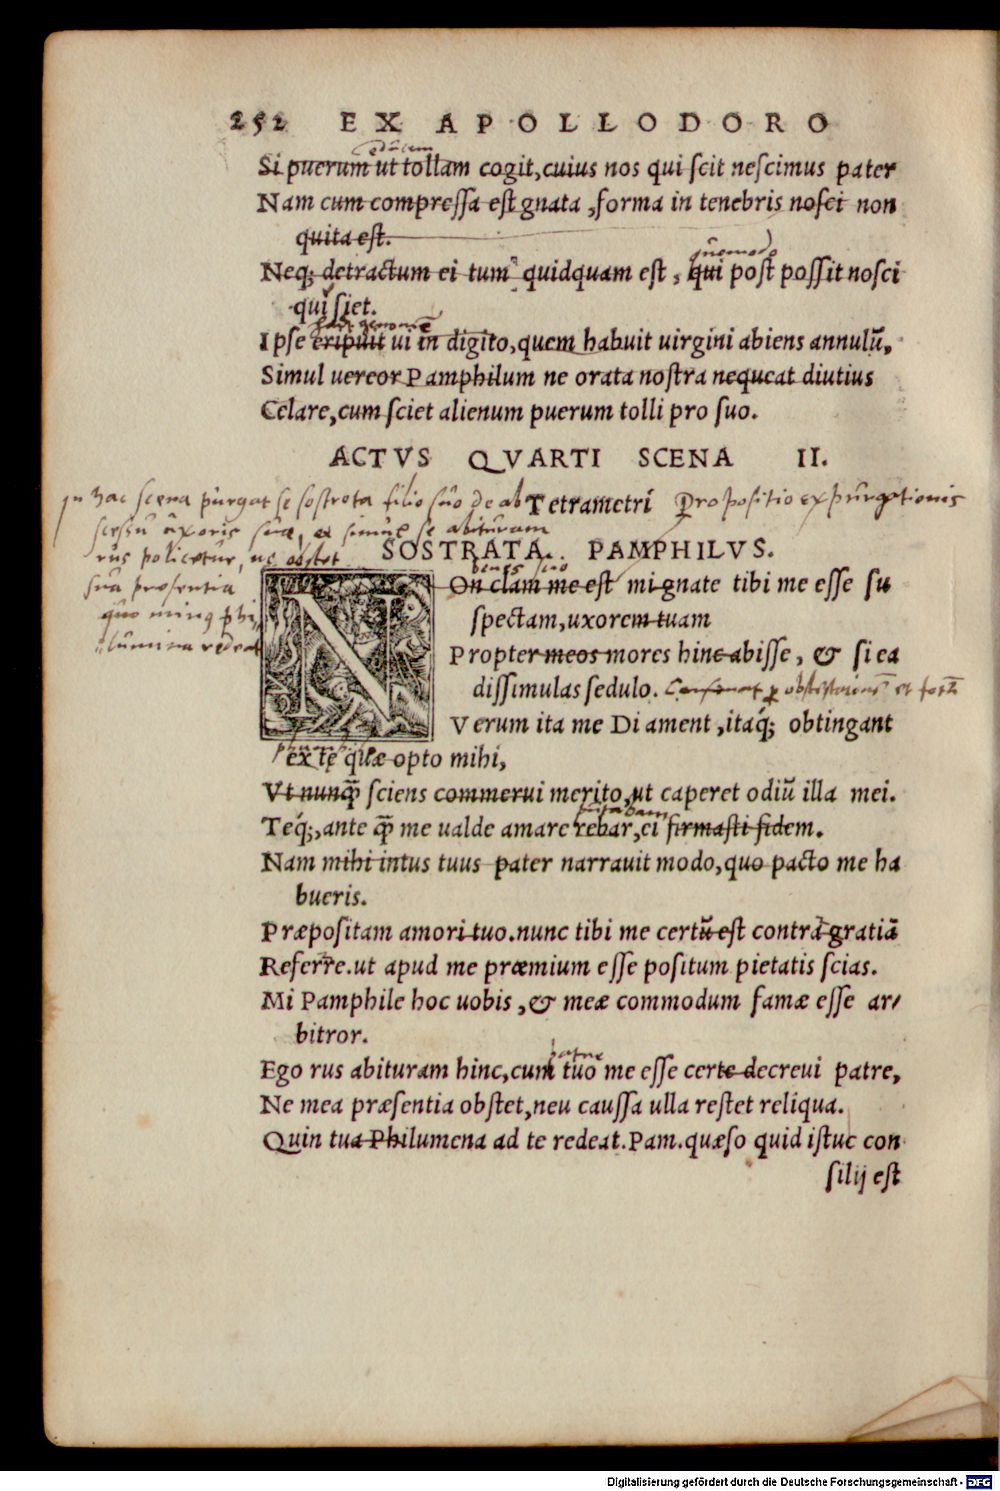 252 EX APOLLODORO
educem
Si puerum ut tollam cogit, cuius nos qui scit nescimus pater
Nam cum compressa est gnata, forma in tenebris nosci non
quita est.
quomodo
Neq; detractum ei tum quidquam est, qui post possit nosci
qui siet.
Ipse eripuit vi in digito, quem habuit uirgini abiens annulū,
Simul uereor Pamphilum ne orata nostra nequeat diutius
Celare, cum sciet alienum puerum tolli pro suo.
ACTVS QVARTI SCENA II.
In hac scena purgat se sostrata filio suo de ab
Tetrametri
Propositio expurgationis
scessu uxoris suæ, et simul se abituram
rus policetur, ne obstet
sua presentia
quo minus phi
lumina redeat
SOSTRATA. PAMPHILVS.
bene scio
NOn clam me est mi gnate tibi me esse su
spectam, uxorem tuam
Propter meos mores hinc abisse, & si ea
dissimulas sedulo.
Verum ita me Di ament, itaq́; obtingant
ex te quæ opto mihi,
Vt nunq̄ sciens commerui merito, ut caperet odiū illa mei.
putabam
Teq́;, ante q̄ me ualde amare rebar, ei firmasti fidem.
Nam mihi intus tuus pater narrauit modo, quo pacto me ha
bueris.
Præpositam amori tuo. nunc tibi me certū est contrà gratiā
Referre. ut apud me præmium esse positum pietatis scias.
Mi Pamphile hoc uobis, & meæ commodum famæ esse ar/
bitror.
patre
Ego rus abituram hinc, cum tuo me esse certe decreui patre,
Ne mea præsentia obstet, neu caussa ulla restet reliqua.
Quin tua Philumena ad te redeat. Pam. quæso quid istuc con
silij est
Digitalisierung gefördert durch die Deutsche Forschungsgemeinschaft - DFG